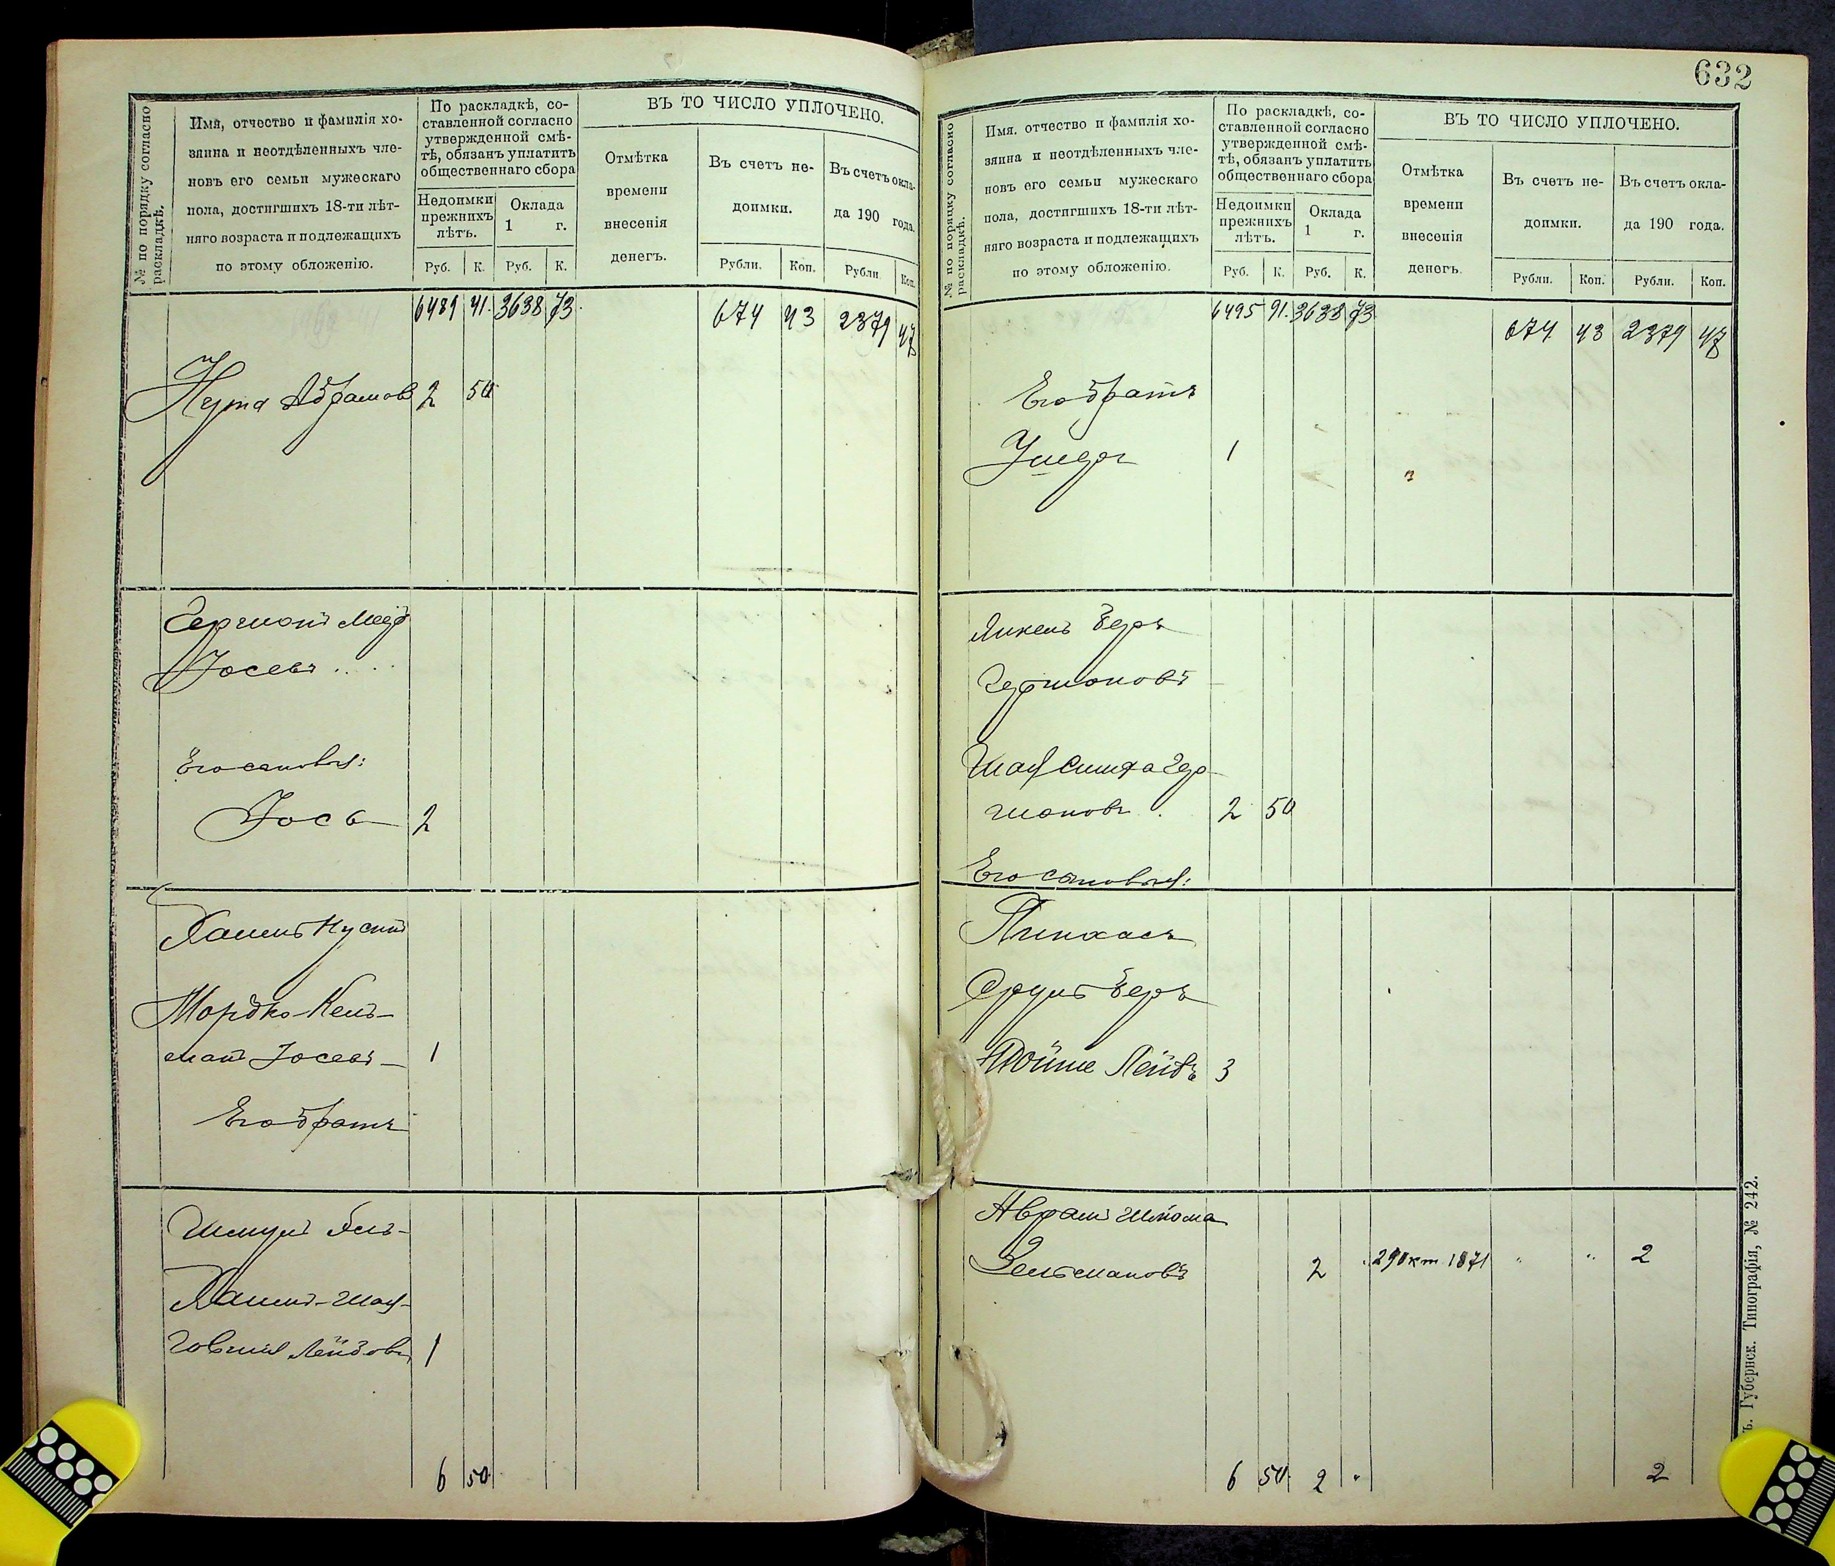 № по порядку согласно раскладкѣ.
Имя, отчество и фамилія хо-
зяина и неотдѣленныхъ чле-
новъ его семьи мужескаго
пола, достигшихъ 18-ти лѣт-
няго возраста и подлежащихъ
по этому обложенію.
По раскладкѣ, со-
ставленной согласно
утвержденной смѣ-
тѣ, обязанъ уплатить
общественнаго сбора
Недоимки
прежнихъ
лѣтъ.
Оклада
1 г.
Руб. К. Руб. К.
ВЪ ТО ЧИСЛО УПЛОЧЕНО.
Отмѣтка
времени
внесенія
денегъ.
Въ счетъ не-
доимки.
Рубли. Коп.
Въ счетъ окла-
да 190 года.
Рубли Коп.
6489 41. 3638 73. 674 43 2379 47
Нута Абрамовъ 2 50
Гершонъ Меер
Іосевъ
Его сыновья:
Іось 2
Хаимъ Нусинъ
Мордко Кель-
манъ Іосевъ 1
Его братъ
Шмуль
Хаимъ-Шая-
Лейбовъ 1
6 50
632
№ по порядку согласно раскладкѣ.
Имя. отчество и фамилія хо-
зяина и неотдѣленныхъ чле-
новъ его семьи мужескаго
пола, достигшихъ 18-ти лѣт-
няго возраста и подлежащихъ
по этому обложенію.
По раскладкѣ, со-
ставленной согласно
утвержденной смѣ-
тѣ, обязанъ уплатить
общественнаго сбора
Недоимки
прежнихъ
лѣтъ.
Оклада
1 г.
Руб. К. Руб. К.
ВЪ ТО ЧИСЛО УПЛОЧЕНО.
Отмѣтка
времени
внесенія
денегъ.
Въ счетъ не-
доимки.
Рубли. Коп.
Въ счетъ окла-
да 190 года.
Рубли. Коп.
6495 91. 3638 73 674 43 2379 47
Его братъ
Ушеръ 1
Янкель Беръ
Гершоновъ
Шая Симха Гер-
шоновъ 2 50
Его сыновья:
Пинхасъ
Сруль Беръ
Мойше Лейбъ 3
Абрамъ Шлёма
Зельмановъ 2 29 окт 1871 " " 2
6 50. 2 " 2
Губернск. Типографія, № 242.